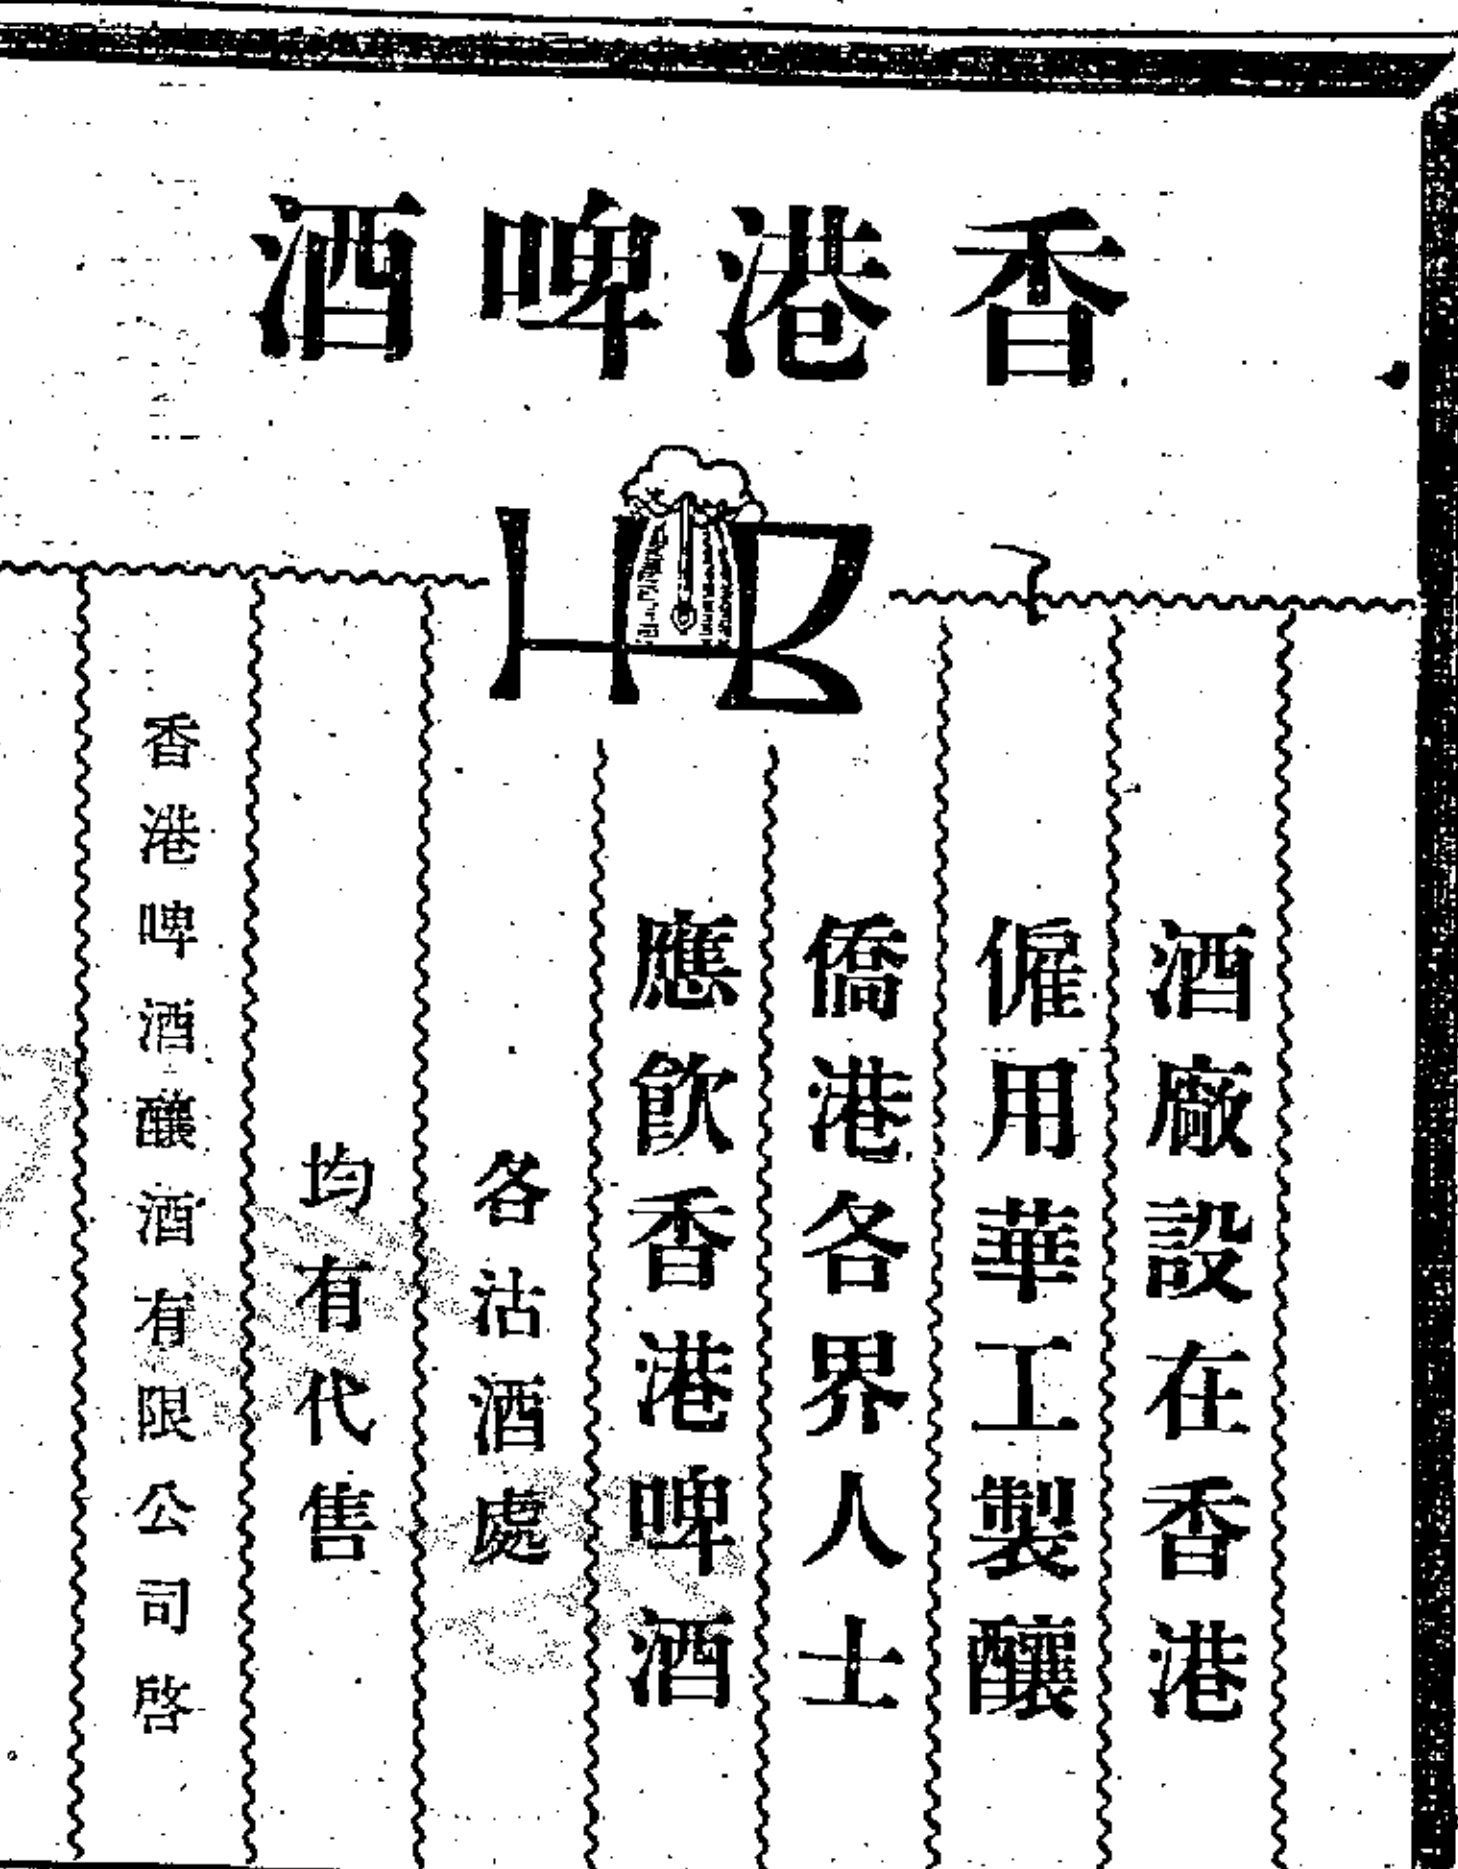 香港啤酒
HB
酒廠設在香港
僱用華工製釀
僑港各界人士
應飲香港啤酒
各沽酒處
均有代售
香港啤酒釀酒有限公司啓